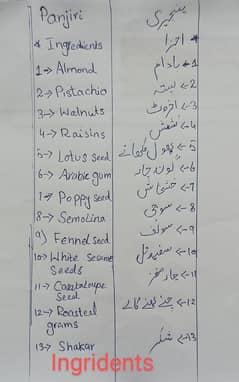 Panjiri پنجیری
* Ingredients * اجزا
1→ Almond 1→ بادام
2→ Pistachio 2→ پستہ
3→ Walnuts 3→ اخروٹ
4→ Raisins 4→ کشمش
5→ Lotus seed 5→ پھول مکھانے
6→ Arabic gum 6→
7→ Poppy seed 7→ خشخاش
8→ Semolina 8→ سوجی
9) Fennel seed 9→ سونف
10→ White sesame 10→ سفید تل
Seeds
11→ Cantaloupe 11→ چار مغز
Seed
12→ Roasted 12→ چنے
grams
13→ Shakar 13→ شکر
Ingridents